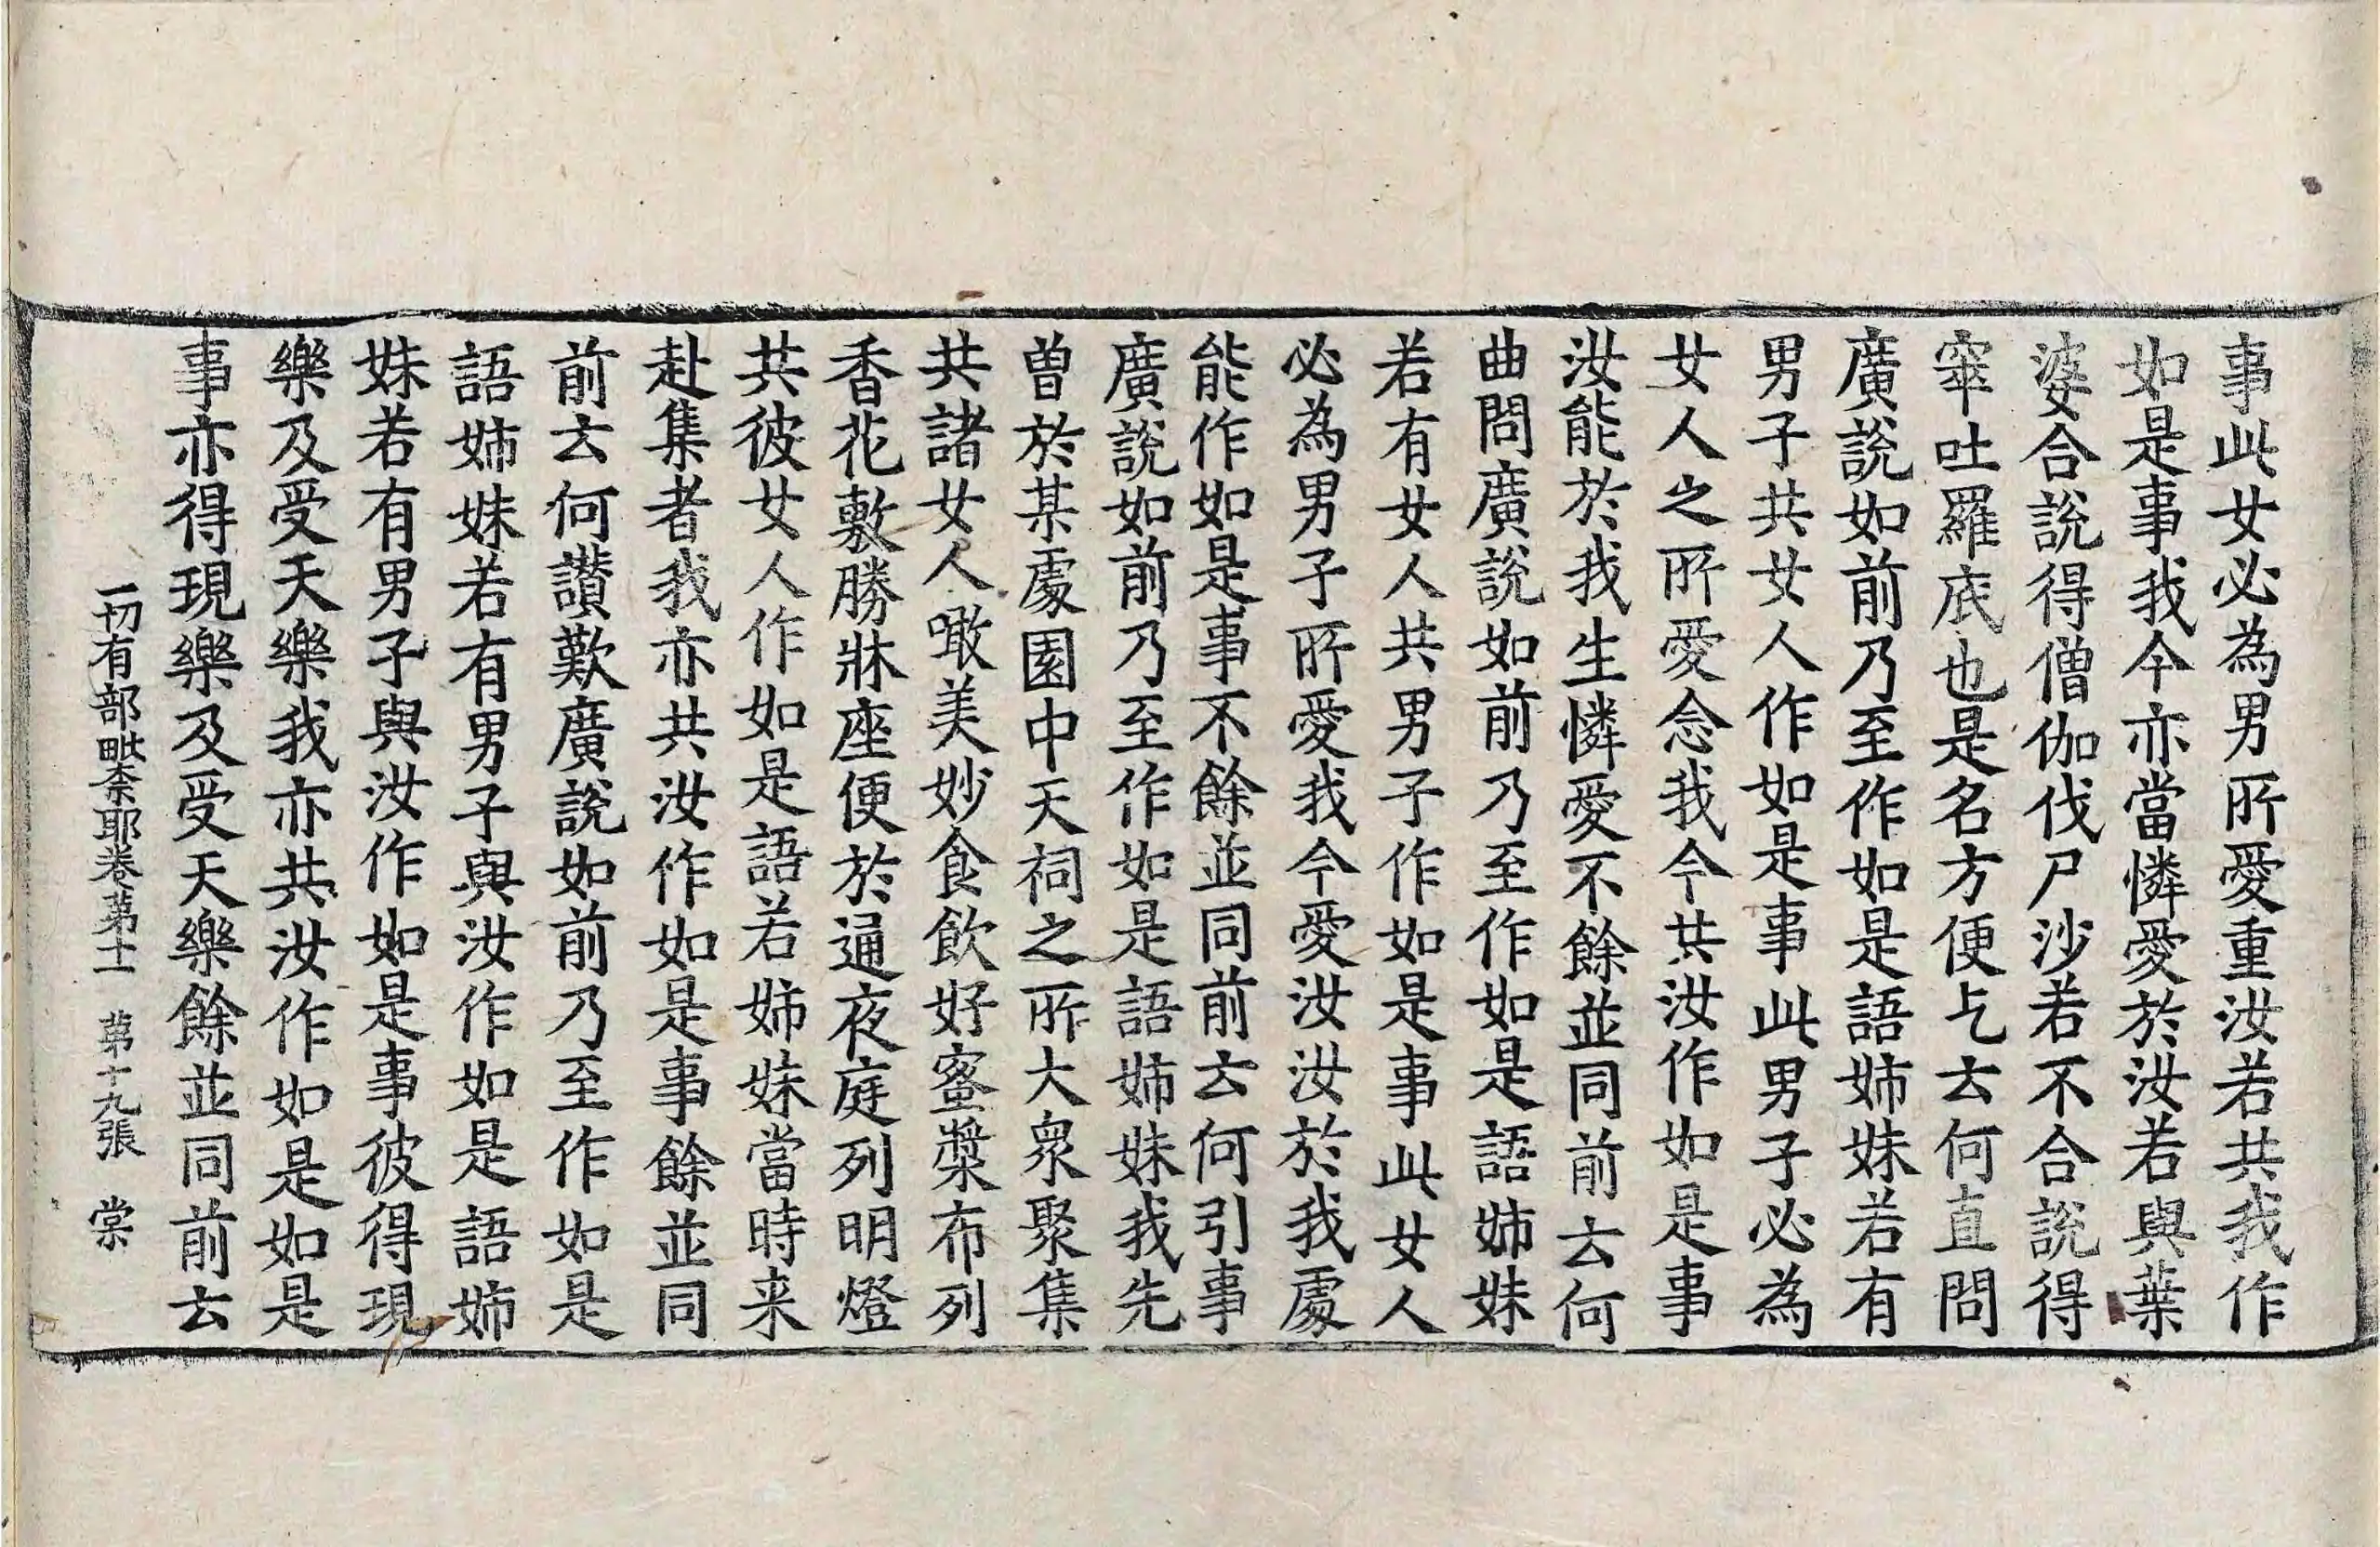 事此女必為男所愛重汝若共我作
如是事我今亦當憐愛於汝若與葉
婆合說得僧伽伐尸沙若不合說得
窣吐羅底也是名方便乞云何直問
廣說如前乃至作如是語姉妹若有
男子共女人作如是事此男子必為
女人之所愛念我今共汝作如是事
汝能於我生憐愛不餘並同前云何
曲問廣說如前乃至作如是語姉妹
若有女人共男子作如是事此女人
必為男子所愛我今愛汝汝於我處
能作如是事不餘並同前云何引事
廣說如前乃至作如是語姉妹我先
曾於某處園中天祠之所大衆聚集
共諸女人噉美妙食飲好蜜漿布列
香花敷勝牀座便於通夜庭列明燈
共彼女人作如是語若姉妹當時来
赴集者我亦共汝作如是事餘並同
前云何讃歎廣說如前乃至作如是
語姉妹若有男子與汝作如是語姉
妹若有男子與汝作如是事彼得現
樂及受天樂我亦共汝作如是如是
事亦得現樂及受天樂餘並同前云
一切有部毗柰耶卷苐十一 苐十九張 棠